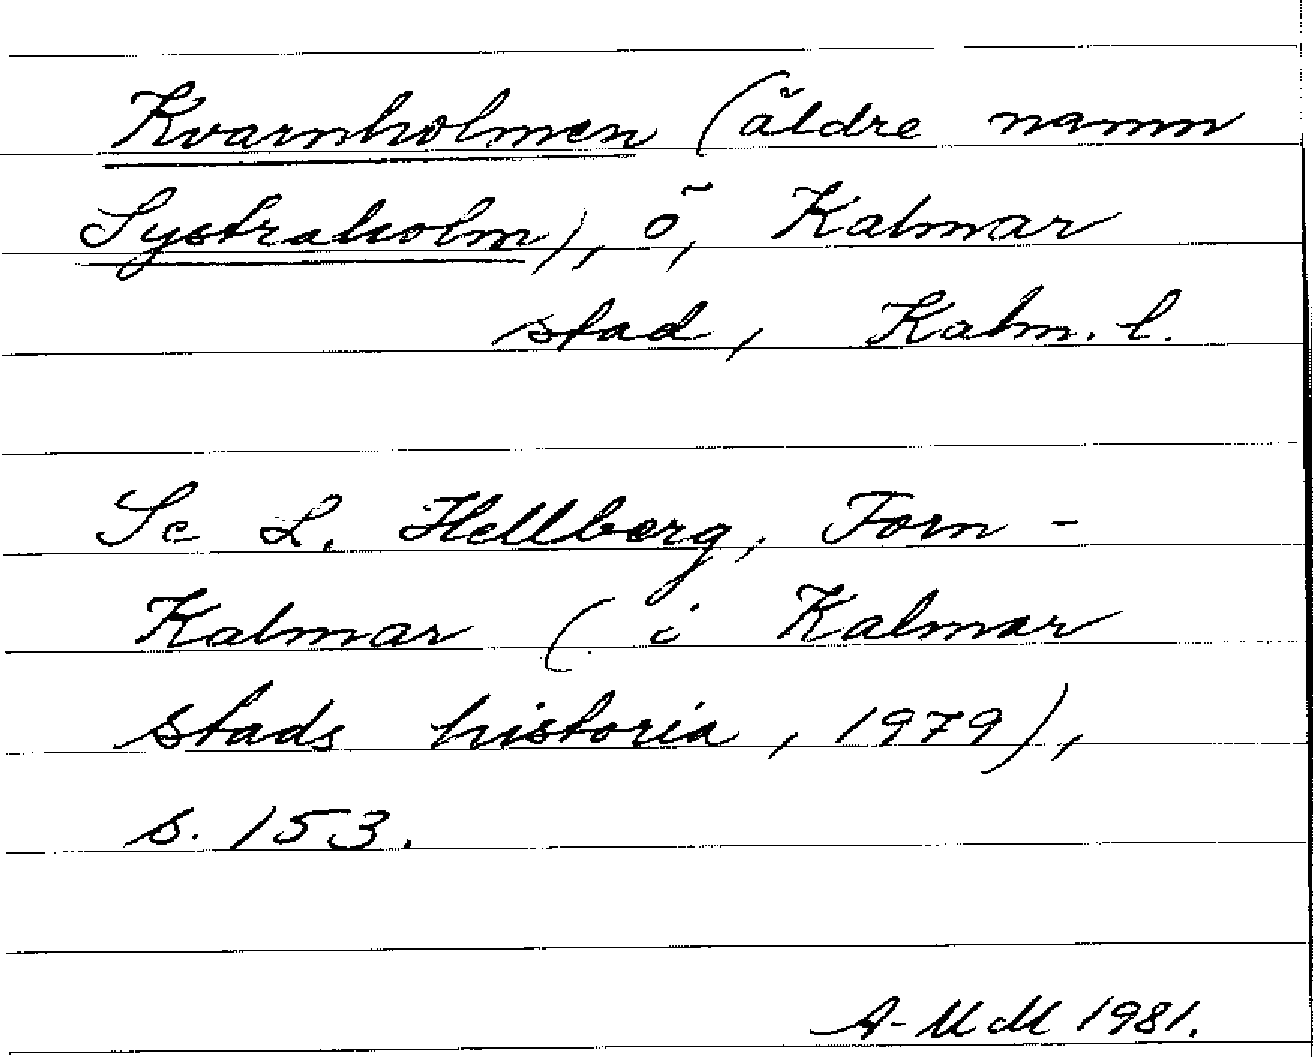 Kvarnholmen (äldre namn
Systraholm), ö, Kalmar
stad, Kalm. l.
Se L. Hellberg, Forn-
Kalmar (i Kalmar
stads historia, 1979),
s. 153.
A-MM 1981.